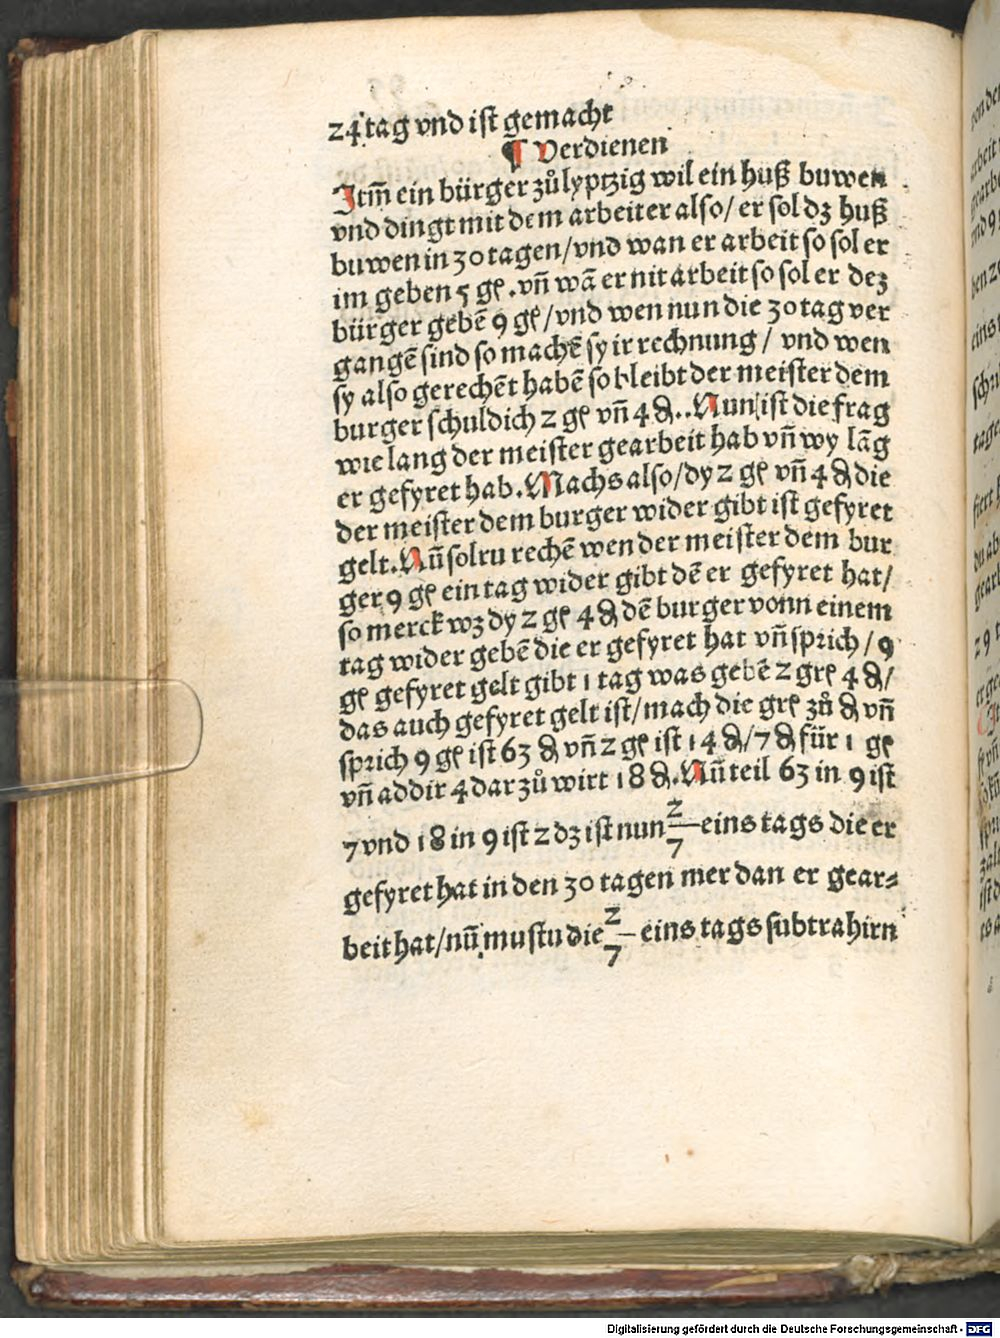 24 tag vnd ist gemacht
¶ Verdienen
Itm̄ ein bürger zů lyptzig wil ein huß buwen
vnd dingt mit dem arbeiter also/ er sol dz huß
buwen in 30 tagen/vnd wan er arbeit so sol er
im geben 5 gꝭ .vñ wã er nit arbeit so sol er dez
bürger gebẽ 9 gꝭ/vnd wen nun die 30 tag ver
gangẽ sind so machẽ sy ir rechnung / vnd wen
sy also gerechẽt habẽ so bleibt der meister dem
burger schuldich 2 gꝭ vñ 4 ₰..Nun ist die frag
wie lang der meister gearbeit hab vñ wy lãg
er gefyret hab.Machs also/dy 2 gꝭ vñ 4 ₰ die
der meister dem burger wider gibt ist gefyret
gelt.Nũ solru rechẽ wen der meister dem bur
ger 9 gꝭ ein tag wider gibt dẽ er gefyret hat/
so merck wz dy 2 gꝭ 4 ₰ dẽ burger vonn einem
tag wider gebẽ die er gefyret hat vñ sprich / 9
gꝭ gefyret gelt gibt 1 tag was gebẽ 2 grꝭ 4 ₰/
das auch gefyret gelt ist/mach die grꝭ zů ₰ vñ
sprich 9 gꝭ ist 63 ₰ vñ 2 gꝭ ist 14 ₰/7 ₰ für 1 gꝭ
vñ addir 4 dar zů wirt 18 ₰.Nũ teil 63 in 9 ist
7 vnd 18 in 9 ist 2 dz ist nun 2/7 eins tags die er
gefyret hat in den 30 tagen mer dan er gear⸗
beit hat/nũ mustu die 2/7 eins tags subtrahirn
Digitalisierung gefördert durch die Deutsche Forschungsgemeinschaft - DFG